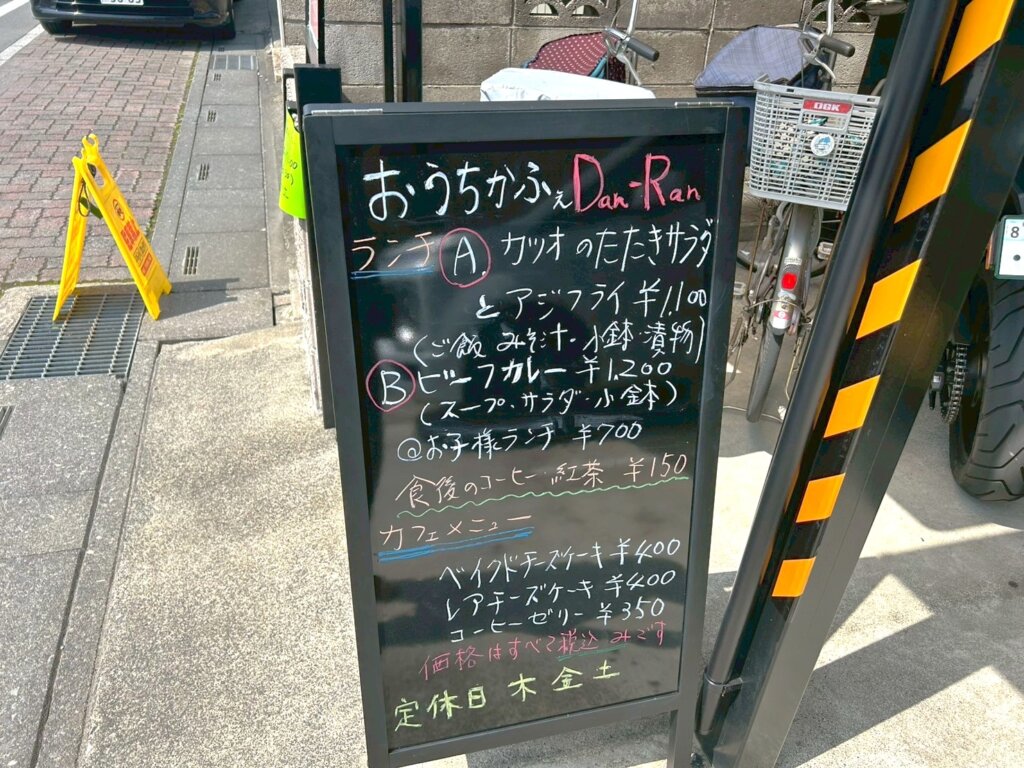 おうちかふぇ Dan-Ran
ランチ A. カツオのたたきサラダ
とアジフライ ¥1,100
(ご飯 みそ汁・小鉢・漬物)
B ビーフカレー ¥1,200
(スープ・サラダ・小鉢)
@お子様ランチ ¥700
食後のコーヒー・紅茶 ¥150
カフェメニュー
ベイクドチーズケーキ ¥400
レアチーズケーキ ¥400
コーヒーゼリー ¥350
価格はすべて税込みです
定休日 木 金 土
DBK
8